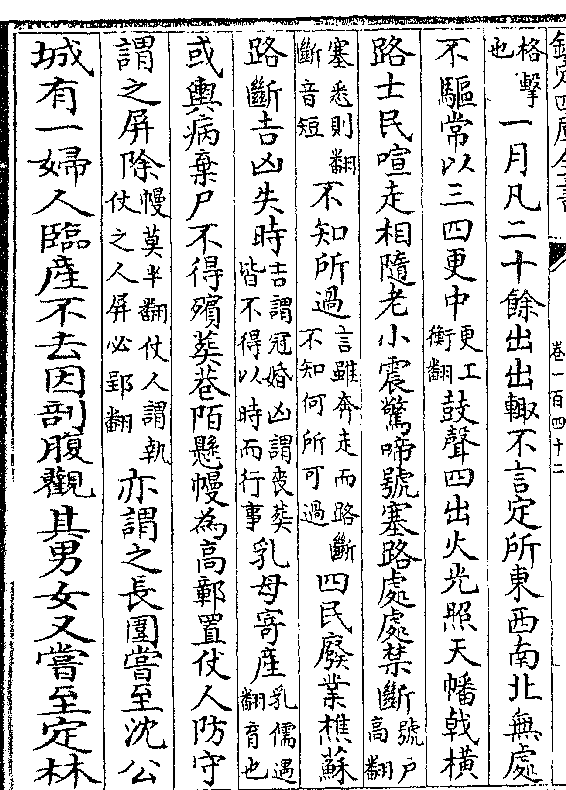 欽定四庫全書
卷一百四十二
格擊也一月凡二十餘出出輙不言定所東西南北無處
不驅常以三四更中更工衡翻鼓聲四出火光照天幡戟橫
路士民喧走相隨老小震驚啼號塞路處處禁斷號户高翻
塞悉則翻斷音短不知所過言雖奔走而路斷不知何所可過四民廢業樵蘇
路斷吉凶失時吉謂冠婚凶謂喪葬皆不得以時而行事乳母寄産乳儒遇翻育也
或輿病棄尸不得殯葬巷陌懸幔為高鄣置仗人防守
謂之屏除幔莫半翻仗人謂執仗之人屏必郢翻亦謂之長圍嘗至沈公
城有一婦人臨産不去因剖腹觀其男女又嘗至定林